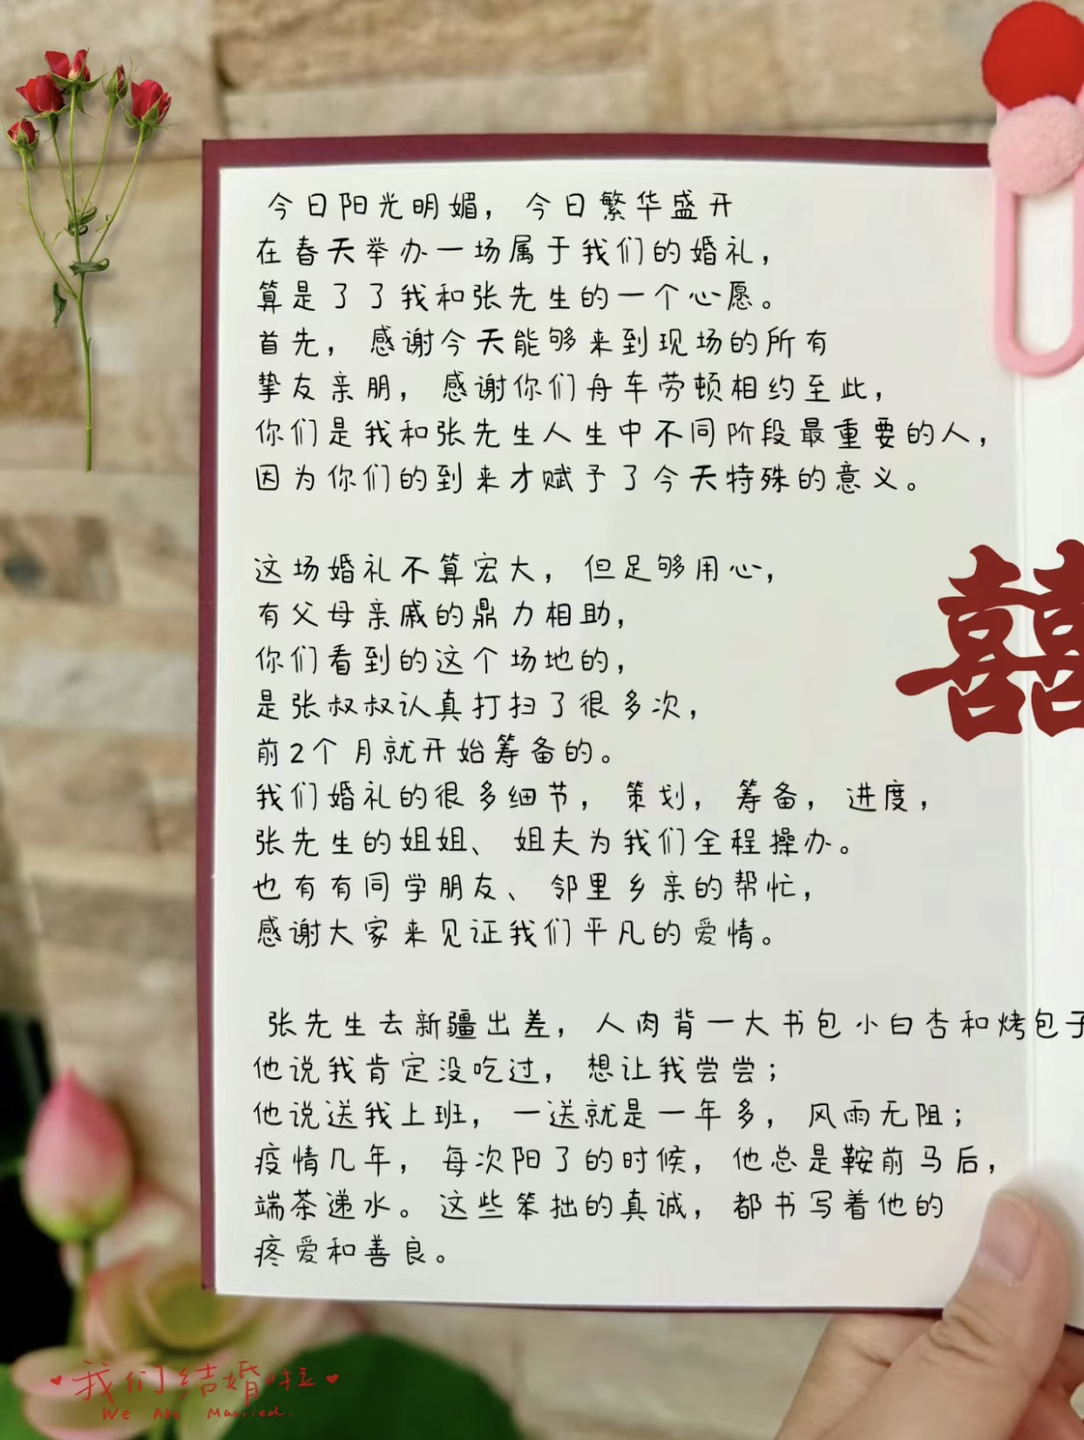 今日阳光明媚，今日繁华盛开
在春天举办一场属于我们的婚礼，
算是了了我和张先生的一个心愿。
首先，感谢今天能够来到现场的所有
挚友亲朋，感谢你们舟车劳顿相约至此，
你们是我和张先生人生中不同阶段最重要的人，
因为你们的到来才赋予了今天特殊的意义。
这场婚礼不算宏大，但足够用心，
有父母亲戚的鼎力相助，
你们看到的这个场地的，
是张叔叔认真打扫了很多次，
前2个月就开始筹备的。
我们婚礼的很多细节，策划，筹备，进度，
张先生的姐姐、姐夫为我们全程操办。
也有有同学朋友、邻里乡亲的帮忙，
感谢大家来见证我们平凡的爱情。
张先生去新疆出差，人肉背一大书包小白杏和烤包子
他说我肯定没吃过，想让我尝尝；
他说送我上班，一送就是一年多，风雨无阻；
疫情几年，每次阳了的时候，他总是鞍前马后，
端茶递水。这些笨拙的真诚，都书写着他的
疼爱和善良。
囍
我们结婚啦
We Are Married.